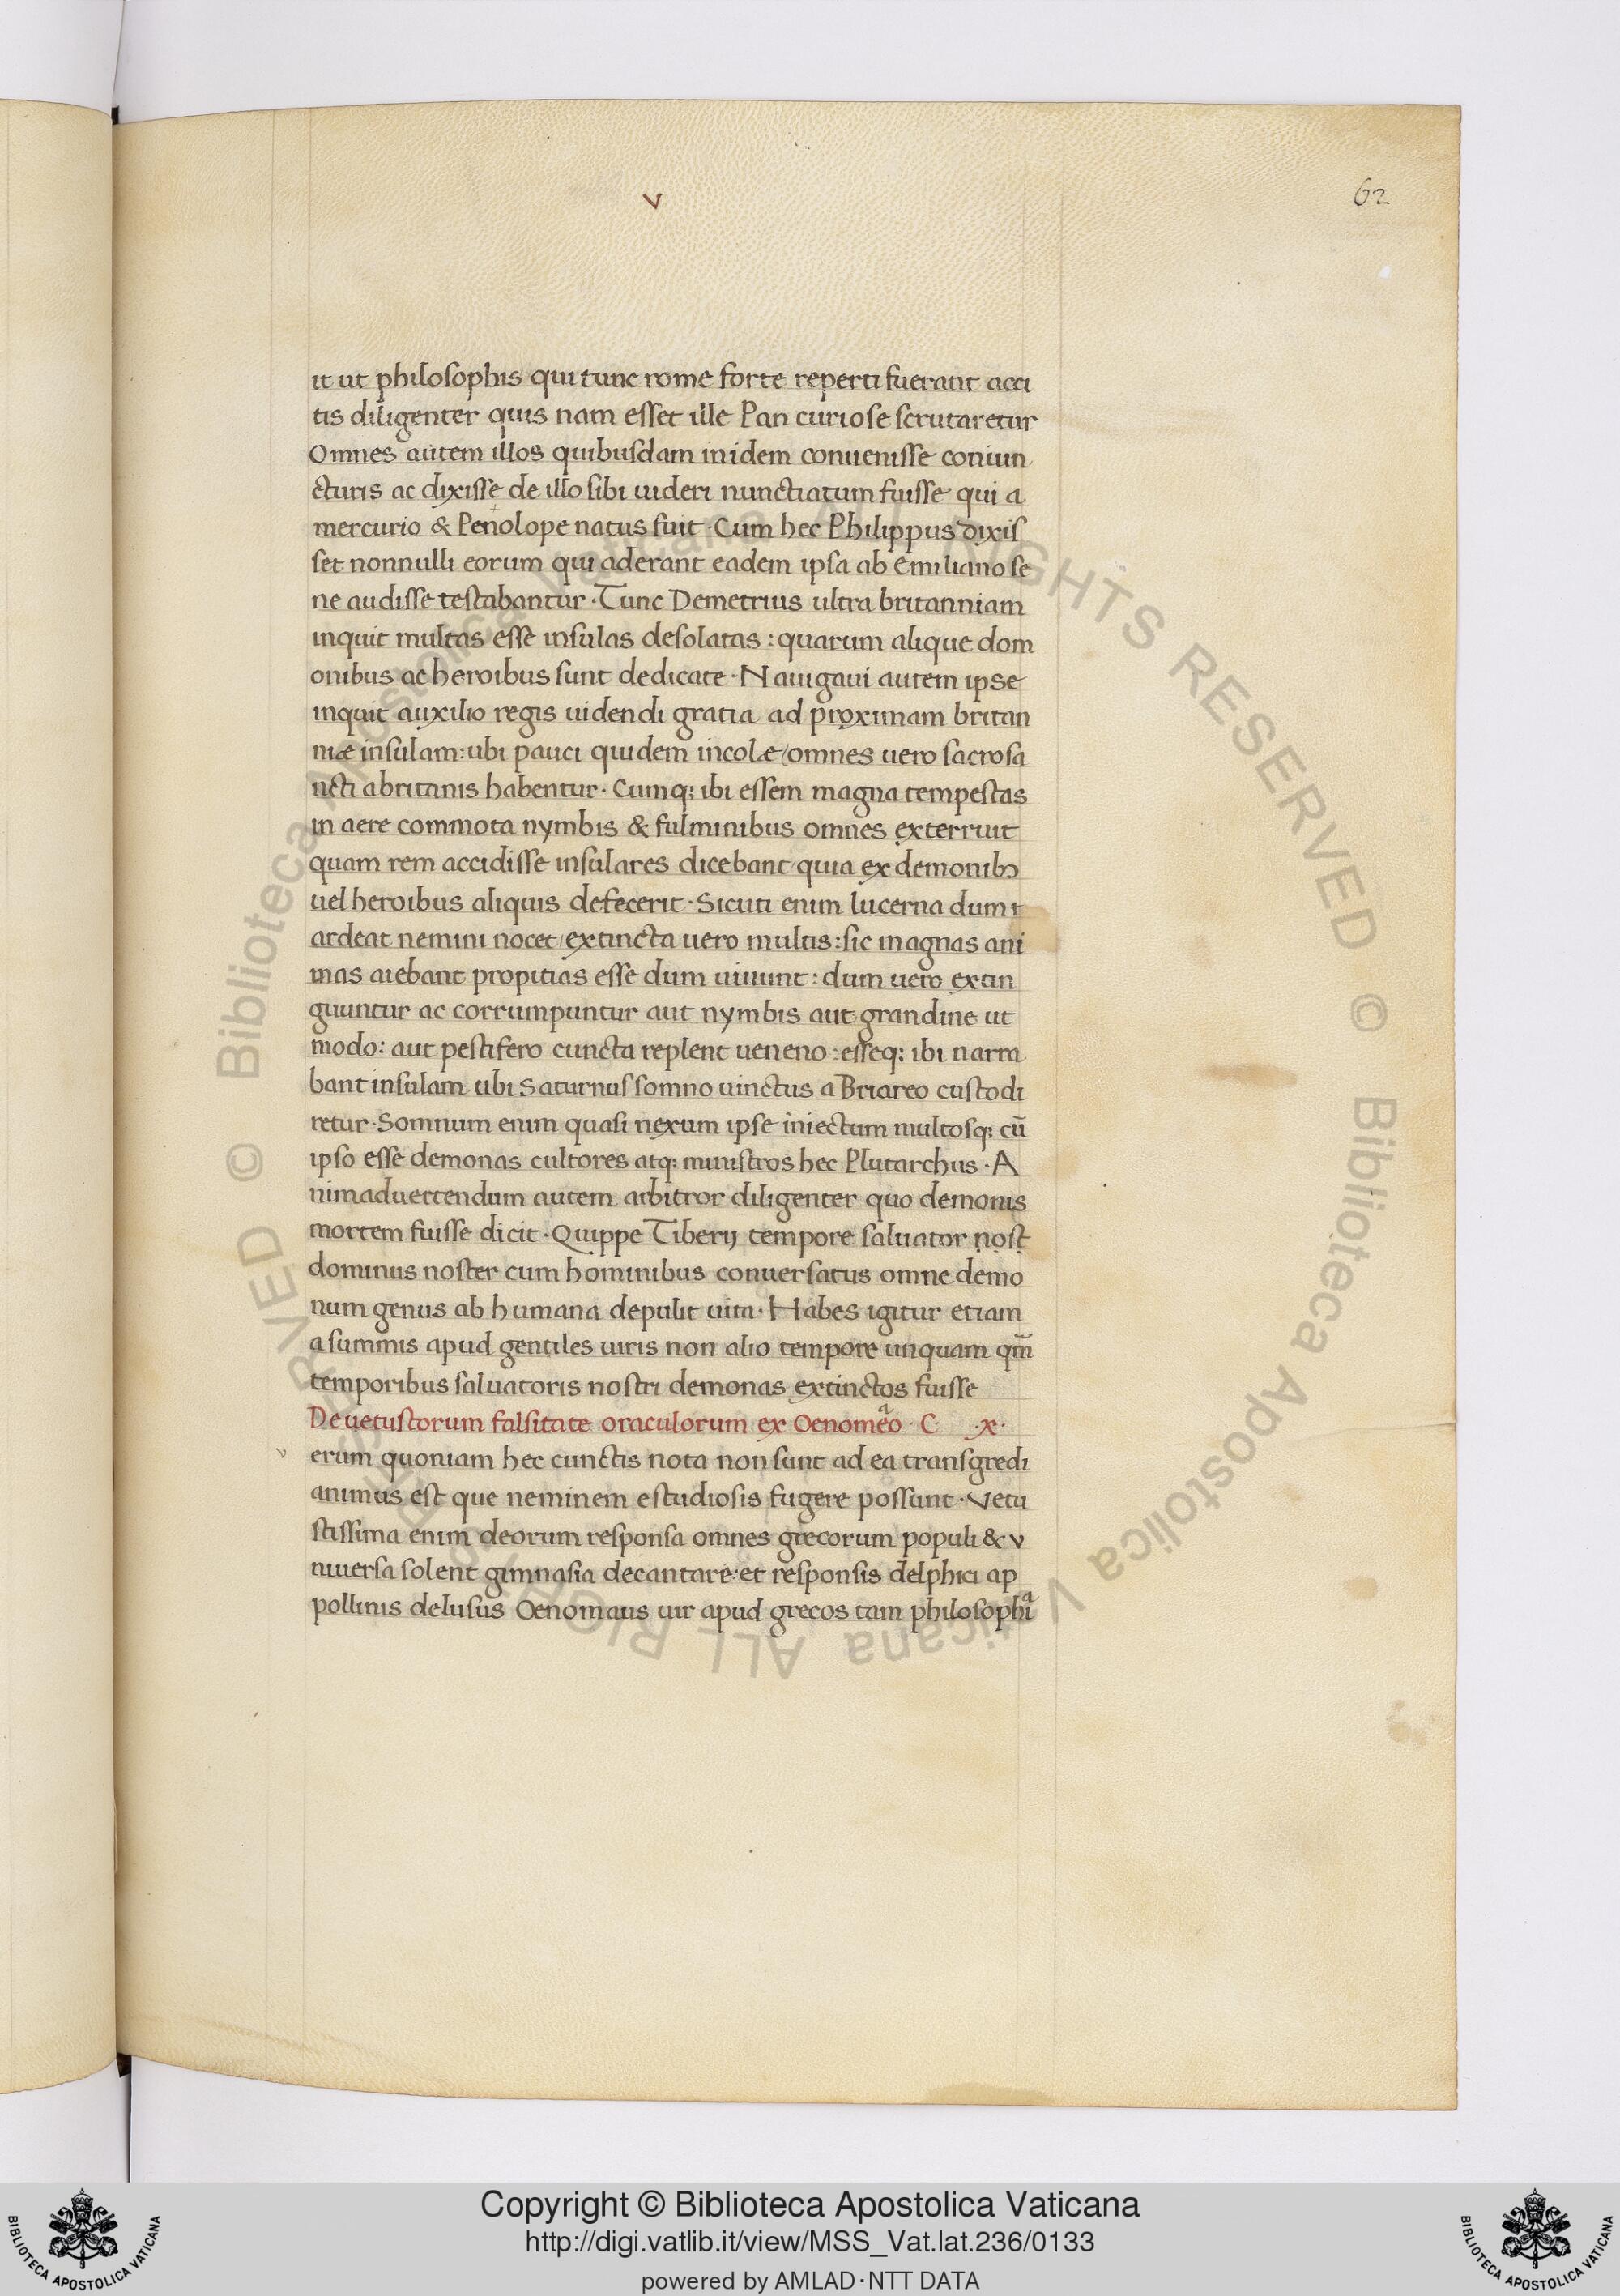 v
62
it ut philosophis qui tunc rome forte reperti fuerant acci
tis diligenter quis nam esset ille Pan curiose scrutaretur
Omnes autem illos quibusdam in idem conuenisse coniun
cturis ac dixisse de illo sibi uideri nunctiatum fuisse qui a
mercurio & Penolope natus fuit · Cum hec Philippus dixis
set nonnulli eorum qui aderant eadem ipsa ab emiliano se
ne audisse testabantur · Tunc Demetrius ultra britanniam
inquit multas esse insulas desolatas : quarum alique dom
onibus ac heroibus sunt dedicate · Nauigaui autem ipse
inquit auxilio regis uidendi gratia ad proximam britan
niæ insulam: ubi pauci quidem incolæ / omnes uero sacrosa
ncti a britanis habentur · Cumq; ibi essem magna tempestas
in aere commota nymbis & fulminibus omnes exterruit
quam rem accidisse insulares dicebant quia ex demonibꝫ
uel heroibus aliquis defecerit · Sicuti enim lucerna dum
ardeat nemini nocet / extincta uero multis : sic magnas ani
mas aiebant propitias esse dum uiuunt : dum uero extin
guuntur ac corrumpuntur aut nymbis aut grandine ut
modo: aut pestifero cuncta replent ueneno : esseq; ibi narra
bant insulam ubi Saturnus somno uinctus a Briareo custodi
retur · Somnum enim quasi nexum ipse iniectum multosq; cū
ipso esse demonas cultores atq; ministros hec Plutarchus · A
nimaduertendum autem arbitror diligenter quo demonis
mortem fuisse dicit · Quippe Tiberij tempore saluator nost
dominus noster cum hominibus conuersatus omne demo
num genus ab humana depulit uita · Habes igitur etiam
a summis apud gentiles uiris non alio tempore unquam qm̄
temporibus saluatoris nostri demonas extinctos fuisse
De uetustorum falsitate oraculorum ex Oenomeo · C · x ·
v
erum quoniam hec cunctis nota non sunt ad ea transgredi
animus est que neminem e studiosis fugere possunt · Vetu
stissima enim deorum responsa omnes grecorum populi & v
niuersa solent gimnasia decantare: et responsis delphici ap
pollinis delusus Oenomaus uir apud grecos tam philosophia
Copyright © Biblioteca Apostolica Vaticana
http://digi.vatlib.it/view/MSS_Vat.lat.236/0133
powered by AMLAD·NTT DATA
BIBLIOTECA APOSTOLICA VATICANA
BIBLIOTECA APOSTOLICA VATICANA
© Biblioteca Apostolica Vaticana ALL RIGHTS RESERVED © Biblioteca Apostolica Vaticana ALL RIGHTS RESERVED